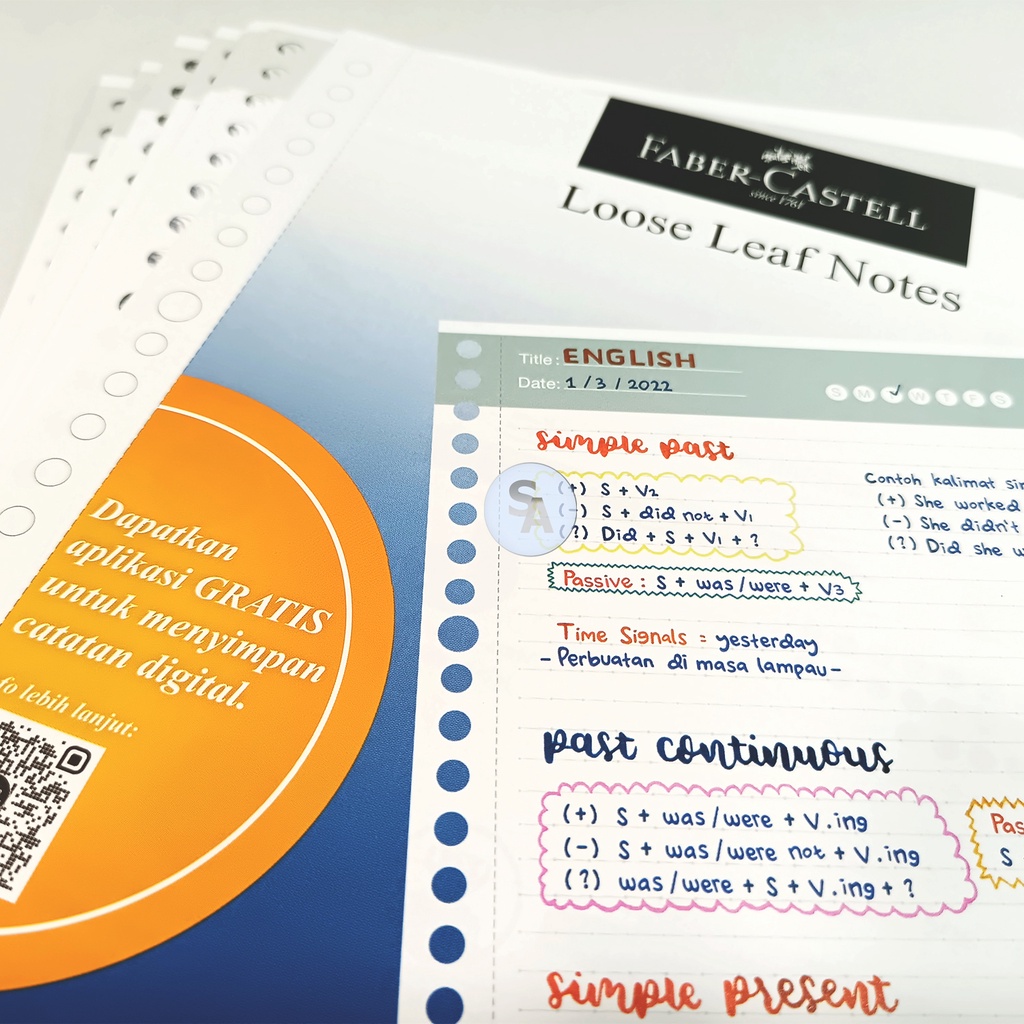 FABER-CASTELL
since 1761
Loose Leaf Notes
Title: ENGLISH
Date: 1 / 3 / 2022
S M T W T F S
simple past
(+) S + V2
(-) S + did not + V1
(?) Did + S + V1 + ?
Contoh kalimat
(+) She worked
(-) She didn't
(?) Did she
Passive : S + was/were + V3
Time Signals = yesterday
- Perbuatan di masa lampau -
past continuous
(+) S + was/were + V.ing
(-) S + was/were not + V.ing
(?) was/were + S + V.ing + ?
S
simple present
Dapatkan
aplikasi GRATIS
untuk menyimpan
catatan digital.
lebih lanjut:
SA